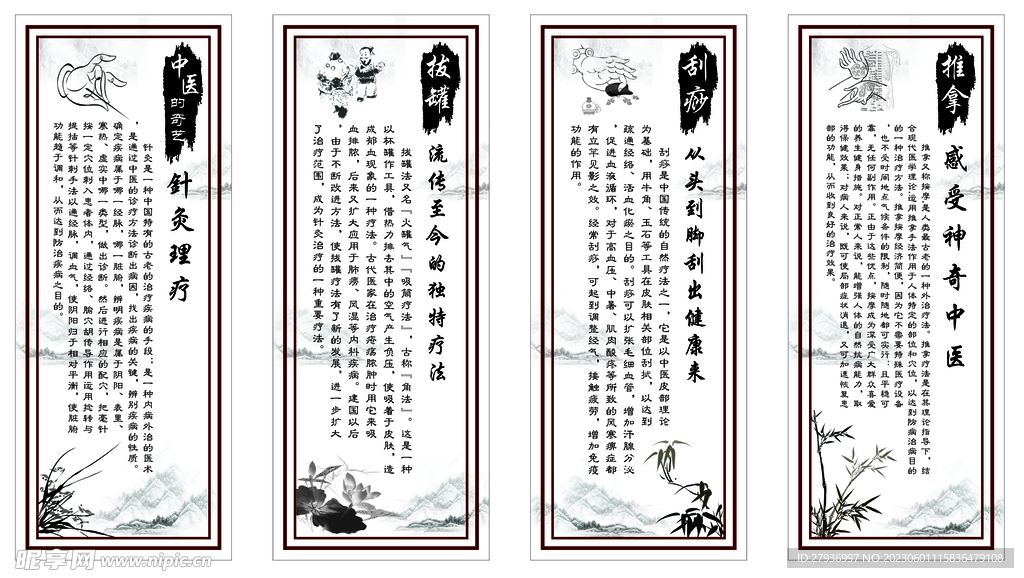 中医的奇艺
針灸理疗
针灸是一种中国特有的古老的治疗疾病的手段；是一种内病外治的医术
，是通过中医的诊疗方法诊断出病因，找出疾病的关键，辨别疾病的性质。
确定疾病属于哪一经脉，哪一脏腑，辨明疾病是属于阴阳、表里、
寒热、虚实中哪一类型，做出诊断。然后进行相应的配穴，把毫针
按一定穴位刺入患者体内，通过经络、腧穴胡传导作用运用捻转与
提插等针刺手法以通经脉，调血气，使阴阳归于相对平衡，使脏腑
功能趋于调和，从而达到防治疾病之目的。
拔罐
流传至今的独特疗法
拔罐法又名『火罐气』『吸筒疗法』，古称『角法』。这是一种
以杯罐作工具，借热力排去其中的空气产生负压，使吸着于皮肤，造
成郁血现象的一种疗法。古代医家在治疗疮疡脓肿时用它来吸
血排脓，后来又扩大应用于肺痨、风湿等内科疾病。建国以后
，由于不断改进方法，使拔罐疗法有了新的发展，进一步扩大
了治疗范围，成为针灸治疗的一种重要疗法。
刮痧
从头到脚刮出健康来
刮痧是中国传统的自然疗法之一，它是以中医皮部理论
为基础，用牛角、玉石等工具在皮肤相关部位刮拭，以达到
疏通经络、活血化瘀之目的。刮痧可以扩张毛细血管，增加汗腺分泌
，促进血液循环，对于高血压、中暑、肌肉酸疼等所致的风寒痹症都
有立竿见影之效。经常刮痧，可起到调整经气，接触疲劳，增加免疫
功能的作用。
推拿
感受神奇中医
推拿又称按摩是人类最古老的一种外治疗法。推拿疗法是在其理论指导下，结
合现代医学理论运用推拿手法作用于人体特定的部位和穴位，以达到防病治病目的
的一种治疗方法。推拿按摩经济简便，因为它不需要特殊医疗设备
，也不受时间地点气候条件的限制，随时随地都可实行；且平稳可
靠，无任何副作用。正由于这些优点，按摩成为深受广大群众喜爱
的养生健身措施。对正常人来说，能增强人体的自然抗病能力，取
得保健效果；对病人来说，既可使局部症状消退，又可加速恢复患
部的功能，从而收到良好的治疗效果。
昵享网 www.nipic.cn
ID:27936997 NO:20230601115836479108